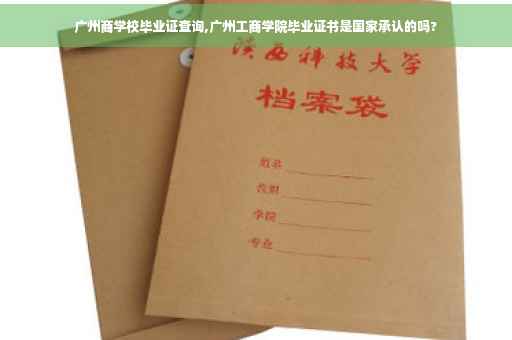 广州商学校毕业证查询,广州工商学院毕业证书是国家承认的吗?
陕西科技大学
档案袋
姓名
学院
专业